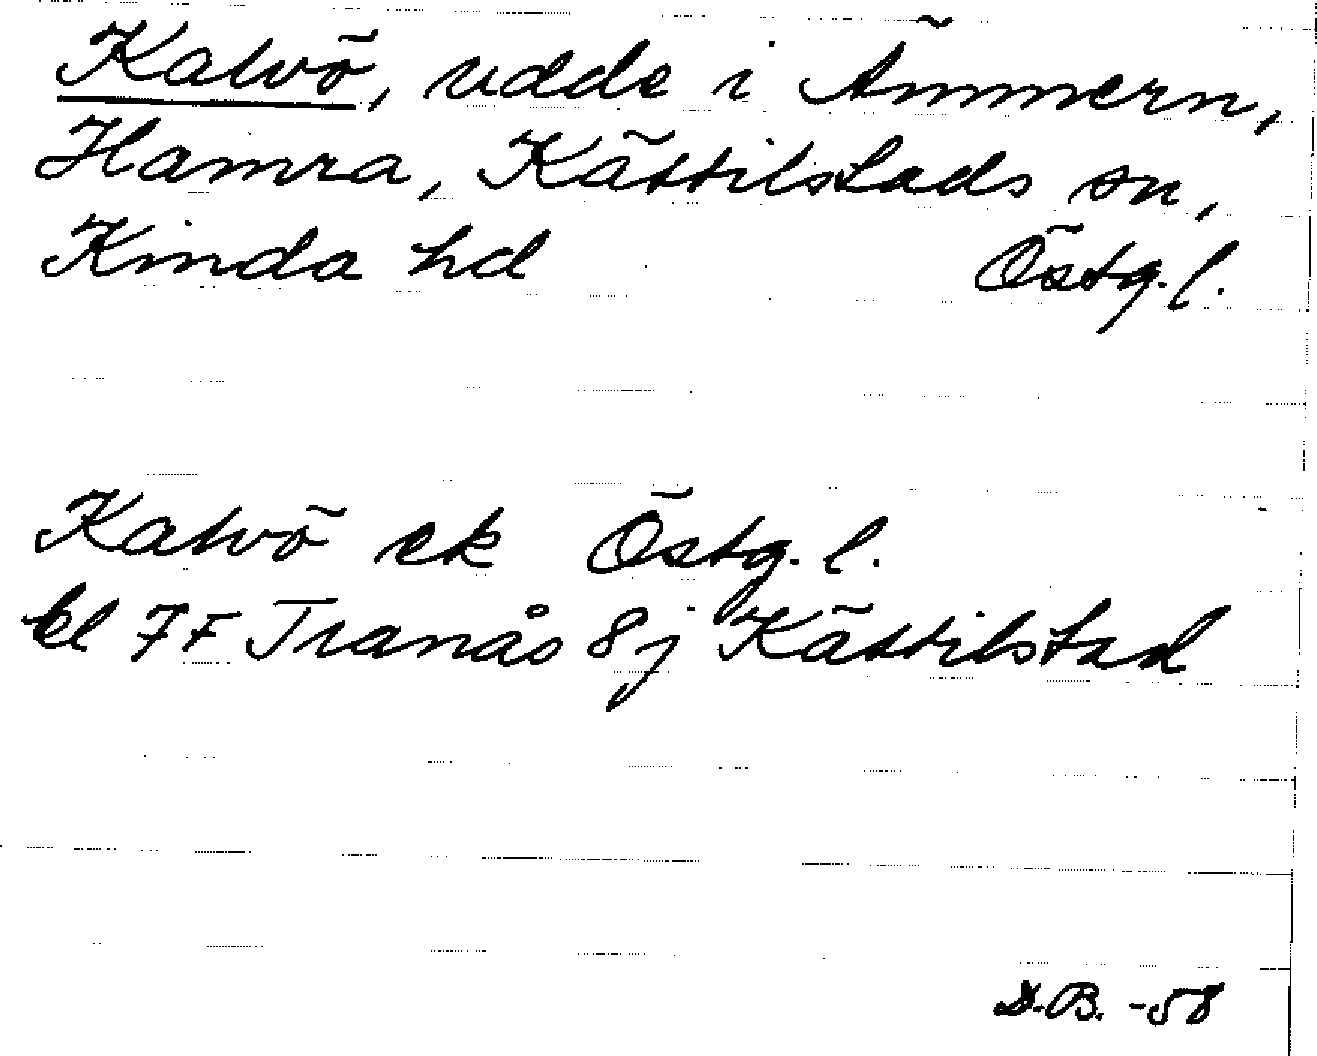 Kalvö, udde i Ämmern,
Hamra, Kättilstads sn,
Kinda hd Östg. l.
Kalvö ek Östg. l.
bl 7F Tranås 8j Kättilstad
D.B. -58